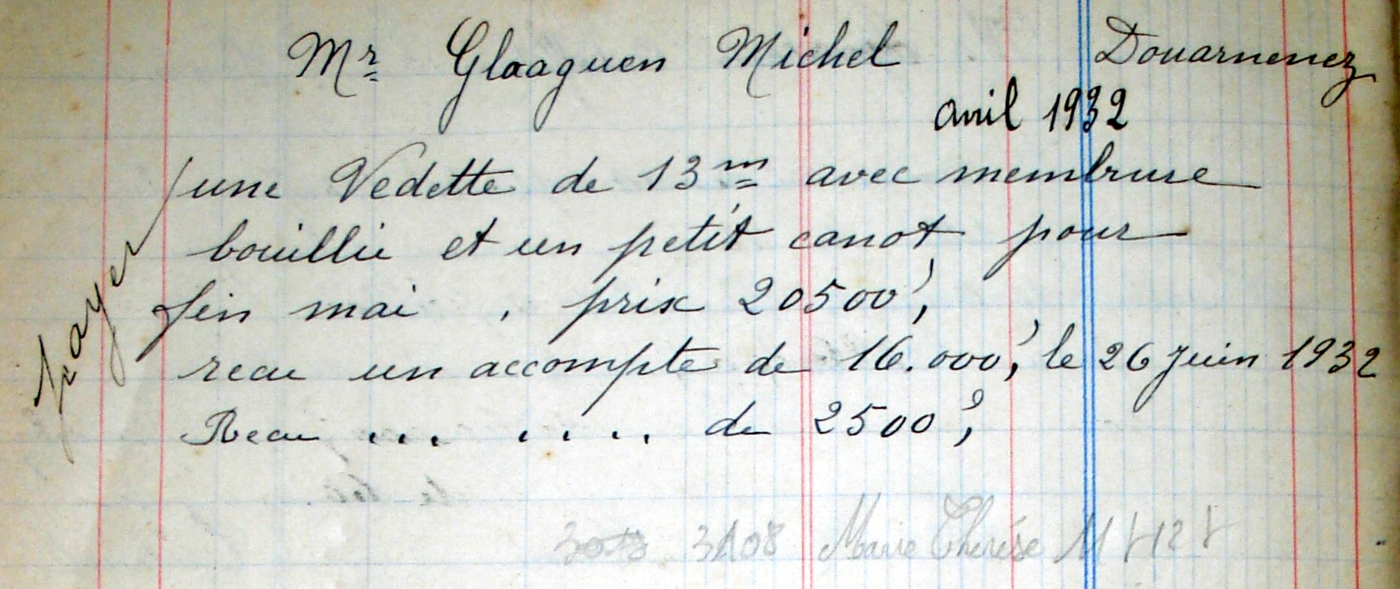 Mr Gloaguen Michel Douarnenez
avril 1932
une Vedette de 13m avec membrure
bouillie et un petit canot pour
fin mai . prix 20500',
recu un accompte de 16.000', le 26 Juin 1932
Recu ... .... de 2500',
payer
3108 Marie Thérèse